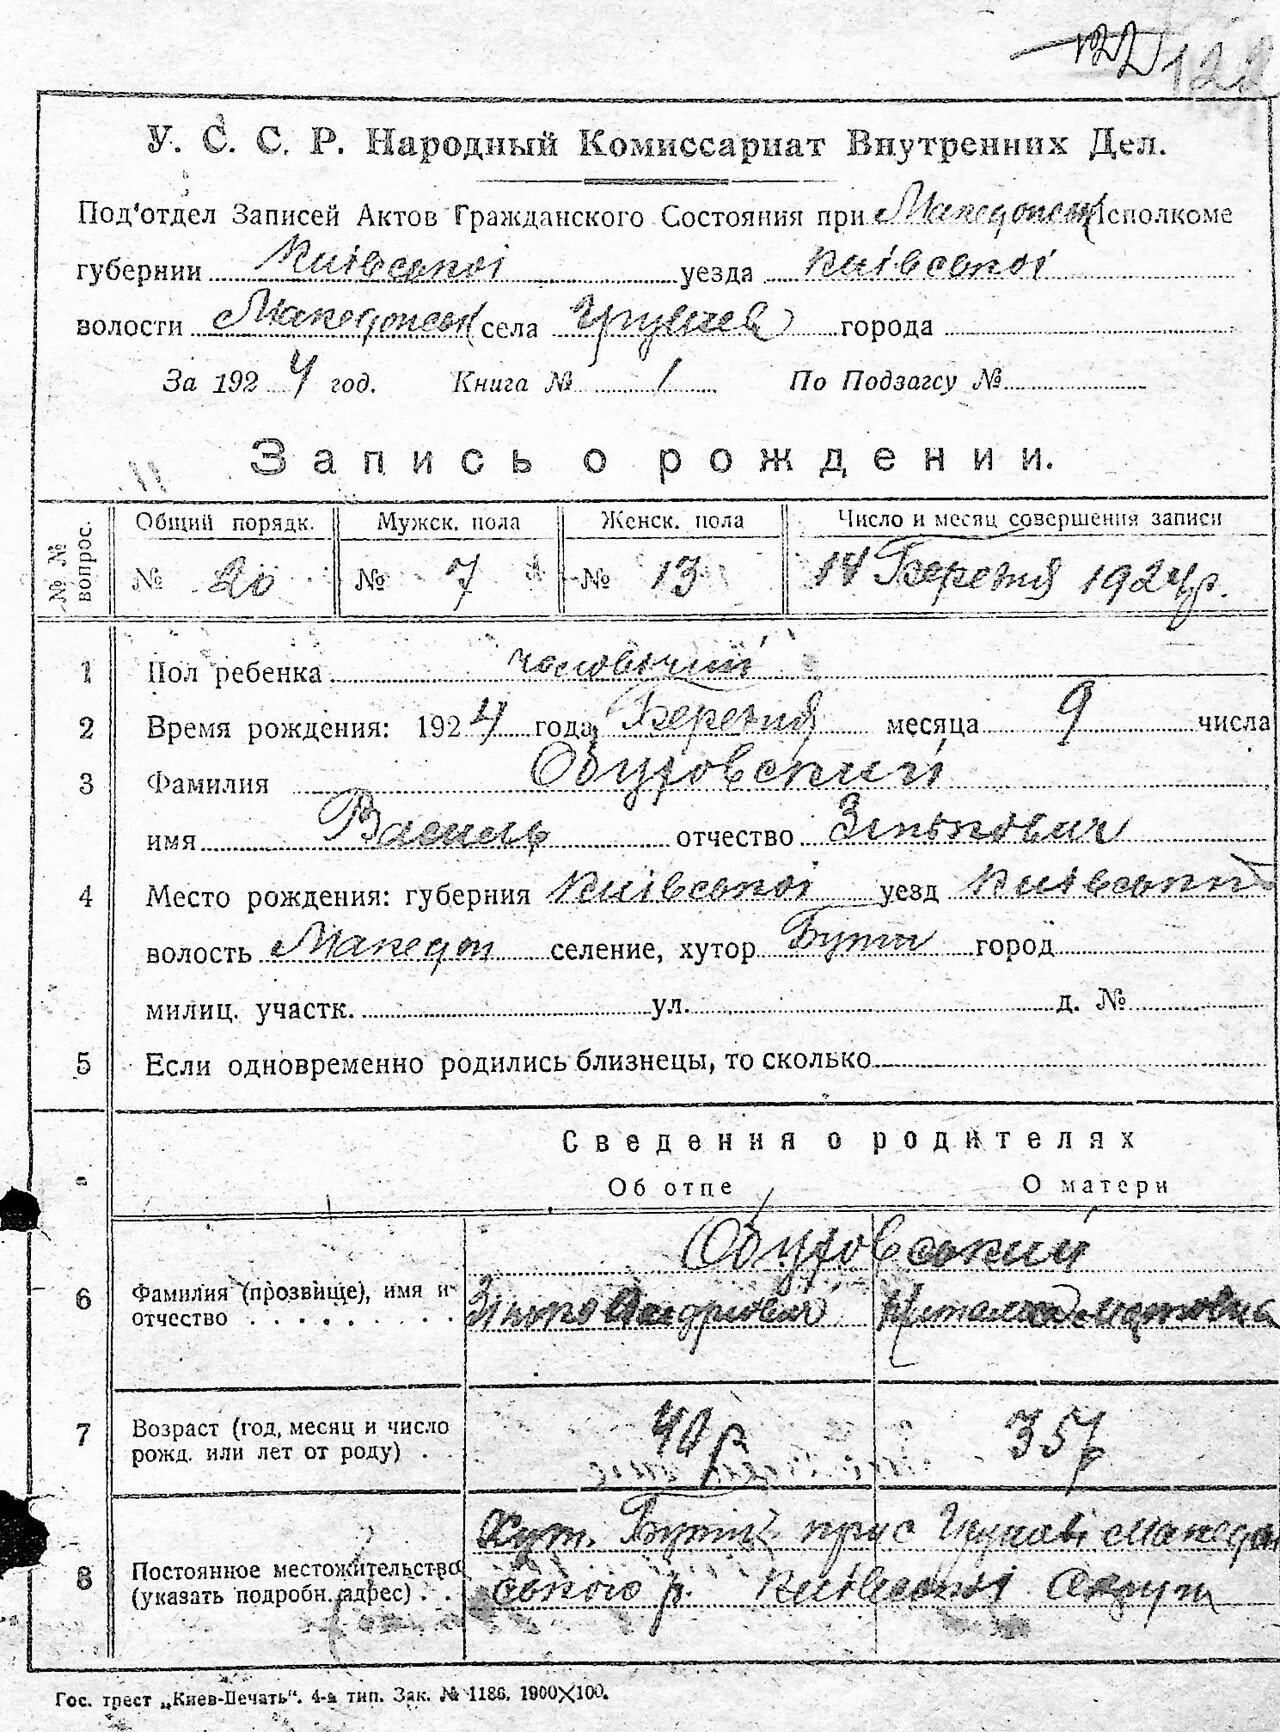 122 122
У. С. С. Р. Народный Комиссариат Внутренних Дел.
Под'отдел Записей Актов Гражданского Состояния при Македонськ Исполкоме
губернии Київської уезда Київської
волости Македонськ села города
За 1924 год. Книга № 1 По Подзагсу №
Запись о рождении.
№ № вопрос. Общий порядк. Мужск. пола Женск. пола Число и месяц совершения записи
№ 20 № 7 № 13 14 Березня 1924 р.
1 Пол ребенка чоловічий
2 Время рождения: 1924 года Березня месяца 9 числа
3 Фамилия Обуховский
имя Василь отчество Зінькович
4 Место рождения: губерния Київської уезд Київський
волость Македон селение, хутор город
милиц. участк. ул. д. №
5 Если одновременно родились близнецы, то сколько
Сведения о родителях
Об отце О матери
Обуховський
6 Фамилия (прозвище), имя и отчество Зінько
7 Возраст (год, месяц и число рожд. или лет от роду) 40 р 35 р
8 Постоянное местожительство (указать подробн. адрес) Хут. при с Македон
ського р. Київської Округи
Гос. трест „Киев-Печать". 4-я тип. Зак. № 1186. 1900×100.